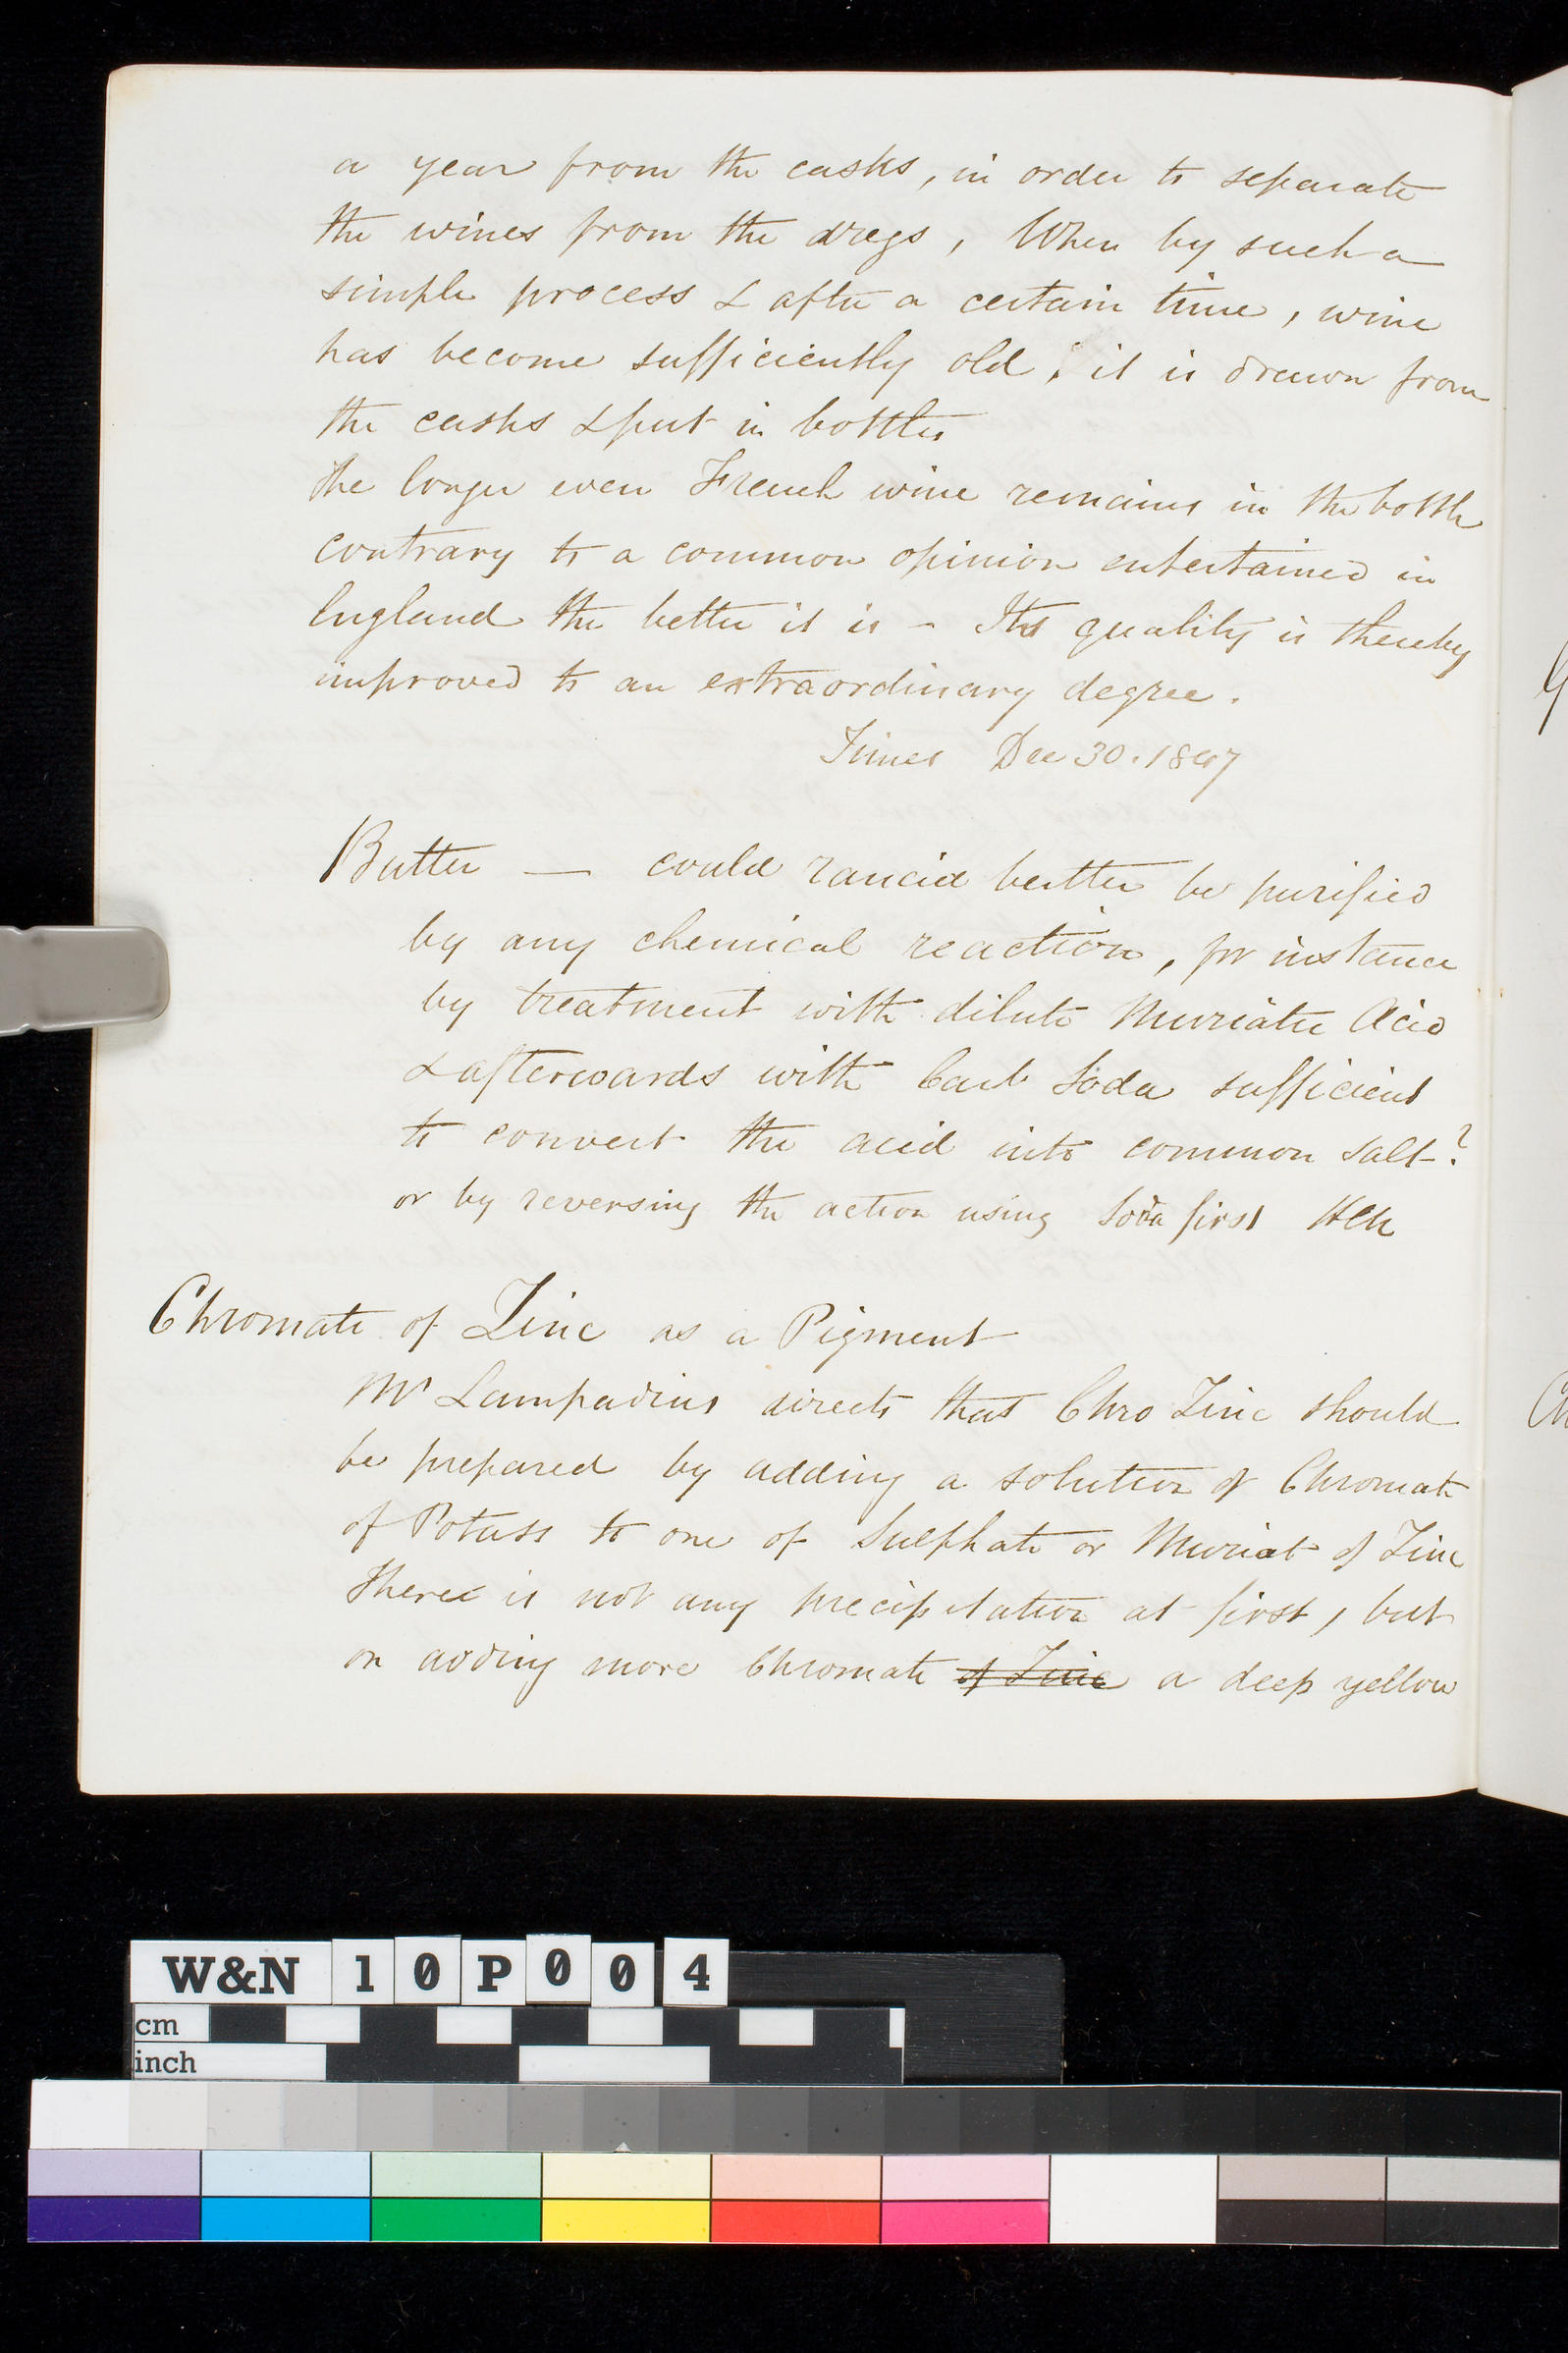 a year from the casks, in order to separate
the wines from the dregs, When by such a
simple process & after a certain time, wine
has become sufficiently old, it is drawn from
the casks & put in bottles
The longer even French wine remains in the bottle
contrary to a common opinion entertained in
England the better it is - Its quality is thereby
improved to an extraordinary degree.
Times Dec 30. 1847
Butter — could rancid butter be purified
by any chemical reaction, for instance
by treatment with dilute Muriatic Acid
& afterwards with Carb Soda sufficient
to convert the acid into common salt?
or by reversing the action using Soda first
Chromate of Zinc as a Pigment
Mr Lampadius directs that Chro Zinc should
be prepared by adding a solution of Chromate
of Potass to one of Sulphate or Muriat of Zinc
There is not any precipitation at first, but
on adding more Chromate of Zinc a deep yellow
W&N 10P004
cm
inch